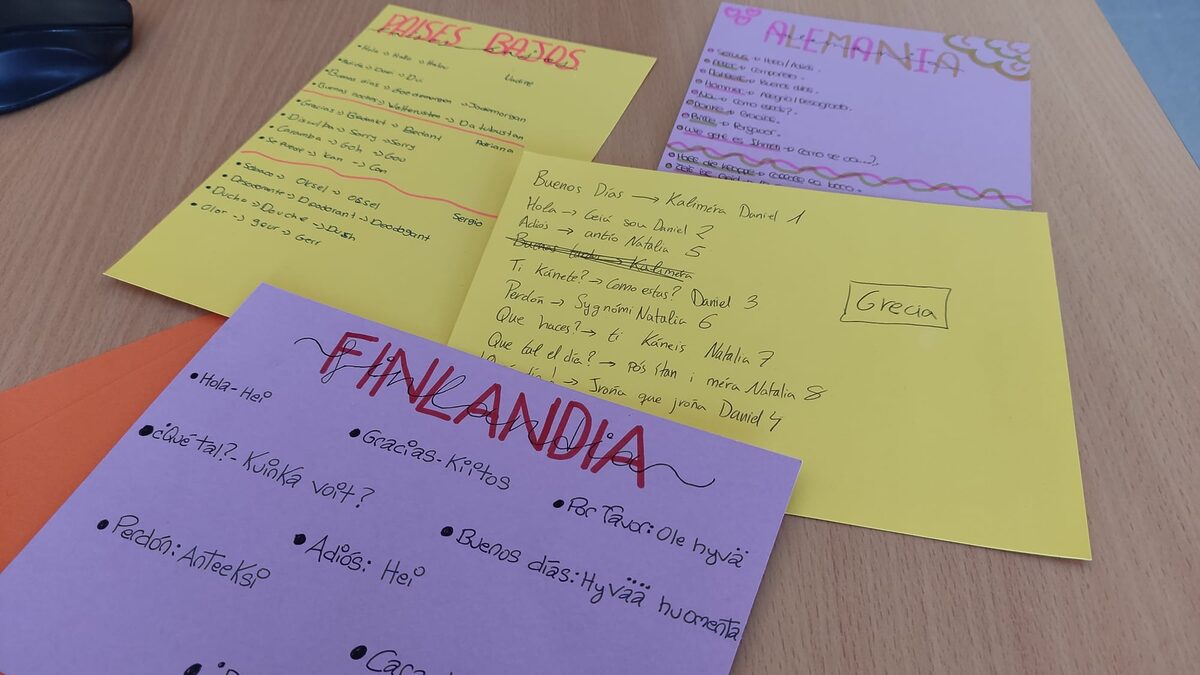 PAISES BAJOS
Hola → Hallo → Haloc
Nadine
Adiós → Doei → Dui
Buenos días → Goedemorgen → Joudemorgan
Buenas noches → Welterusten → Da tubustan
Gracias → Bedankt → Bedant
Adriana
Disculpa → Sorry → Sorry
Caramba → Goh → Gou
Se puede → Kan → Can
Sobaco → Oksel → Ossel
Sergio
Desodorante → Deodorant → Deodogant
Ducha → Douche → Dush
Oler → geur → Gerr
ALEMANIA
Servus → Hola/Adiós.
→ Compañero.
→ Buenos días.
Hammer → Alegría/Desagrado.
Na → Como estás?.
Danke → Gracias.
Bitte → Porfavor.
Wie geht es Ihnen → Como se
Halt die Klappe → Cierra la boca.
Buenos Días → Kaliméra Daniel 1
Hola → Geiá sou Daniel 2
Adiós → antío Natalia 5
Buenas tardes → Kaliméra
Ti kánete? → Como estas? Daniel 3
Perdón → Sygnómi Natalia 6
Que haces? → ti Káneis Natalia 7
Que tal el día? → pós ítan i méra Natalia 8
→ Jroña que jroña Daniel 4
Grecia
FINLANDIA
finlandia
Hola - Hei
Gracias - Kiitos
¿Qué tal? - Kuinka voit?
Por favor: Ole hyvä
Perdón: Anteeksi
Adiós: Hei
Buenos días: Hyvää huomenta